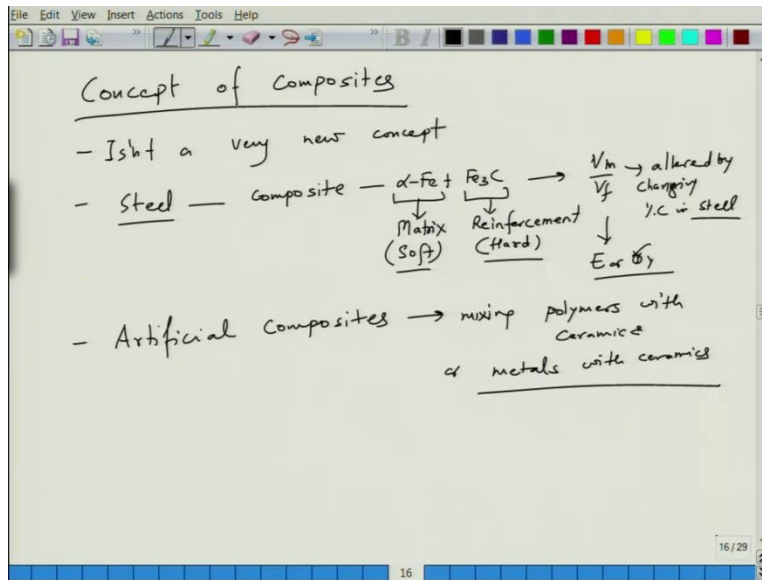 File Edit View Insert Actions Tools Help
Concept of Composites
- Isn't a very new concept
- Steel — composite — α-Fe + Fe₃C → Vm/Vf → altered by changing %C in steel
Matrix (Soft)
Reinforcement (Hard)
↓
E or σy
- Artificial Composites → mixing polymers with
ceramics
or metals with ceramics
16/29
16